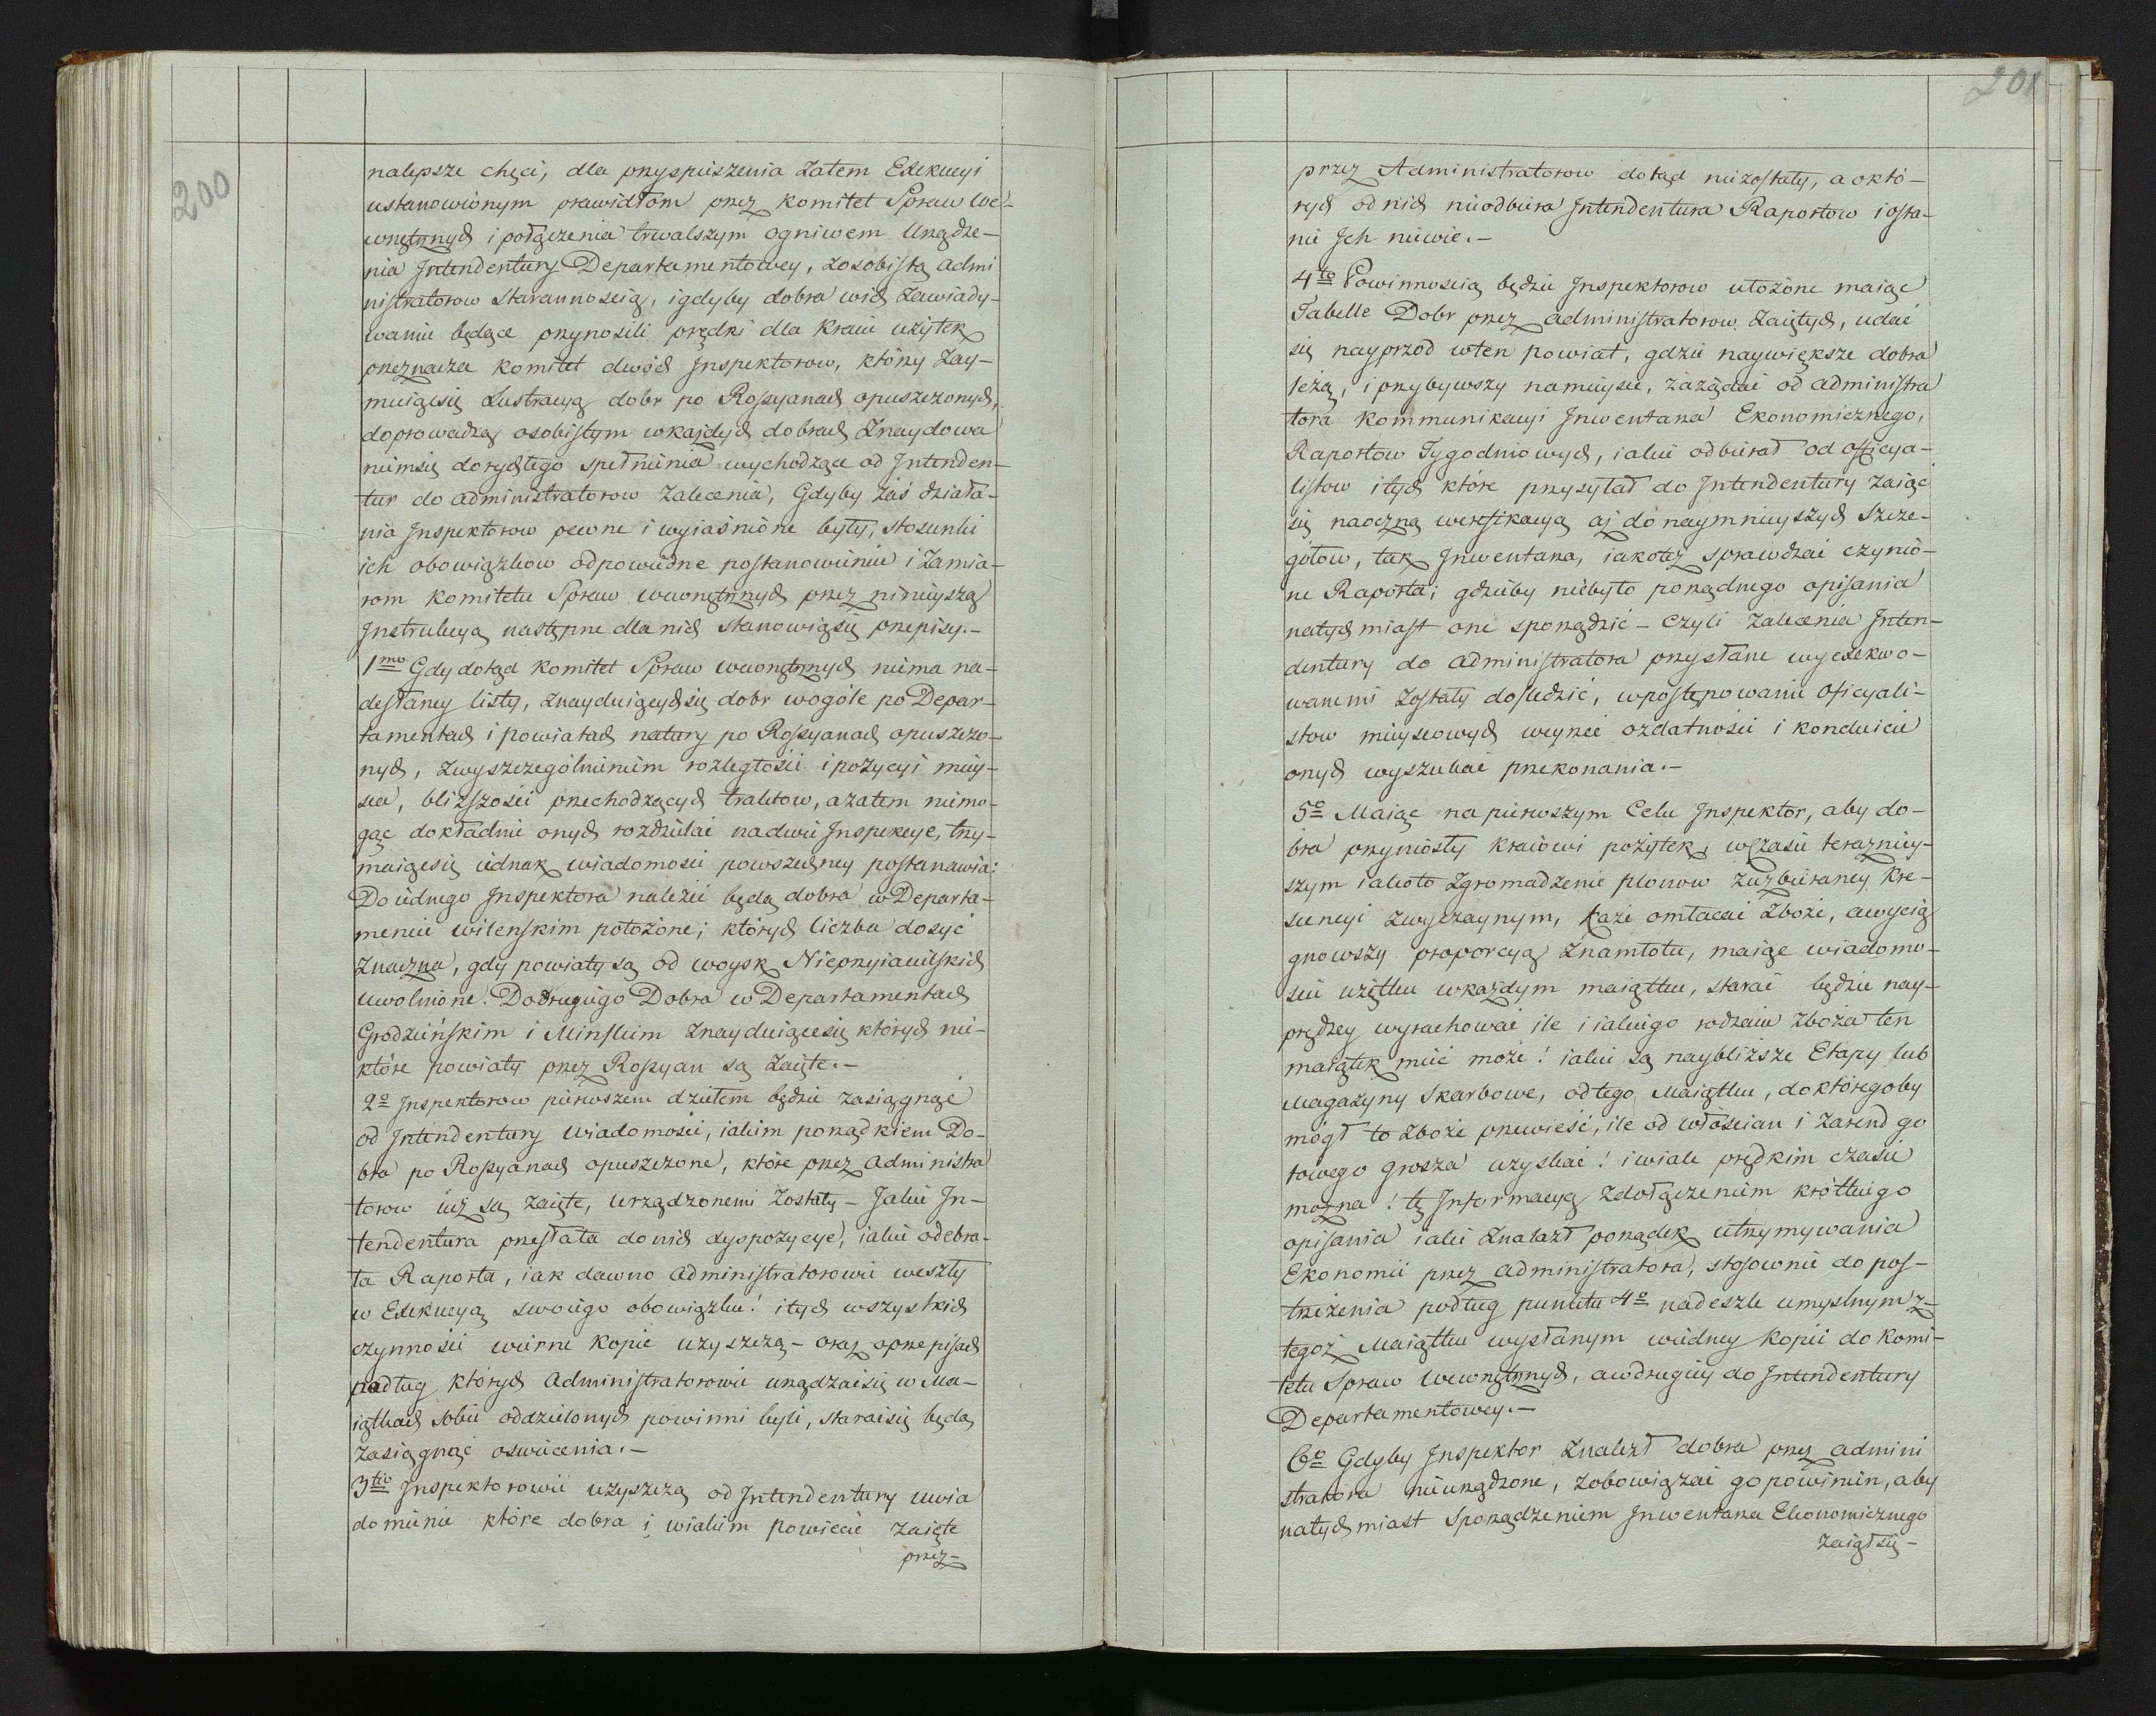 200
nalepsze chęci, dla przyspieszenia Zatem Exekucyi
ustanowionym prawidłom przez komitet Spraw We-
wnętrznych i połączenia trwalszym ogniwem Urządze-
nia Intendentury Departamentowey, z osobistą Admi
nistratorow starannoscią, i gdyby dobra w ich Zawiady-
waniu będące przynosili prędki dla Kraiu użytek
przeznacza komitet dwóch Inspektorow, którzy Zay-
muiąc się Lustracyą dobr po Rossyanach opuszczonych,
doprowadzą osobistym w każdych dobrach Znaydowa
niem się do rychłego spełnienia wychodzące od Intenden-
tur do administratorow Zalecenia, Gdyby zaś działa-
nia Inspektorow pewne i wyiaśnione były, stosunki
ich obowiązkow odpowiedne postanowieniu i Zamia-
rom komitetu Spraw wewnętrznych przez ninieyszą
Instrukcyą następne dla nich stanowią się przepisy.-
1mo Gdy dotąd komitet Spraw wewnętrznych niema na-
desłaney listy, Znayduiących się dobr w ogóle po Depar-
tamentach i powiatach natury po Rossyanach opuszczo-
nych, Zwyszczególnieniem rozległości i pozycyi miey-
sca, bliższości przechodzących traktow, a zatem niemo-
gąc dokładnie onych rozdzielać na dwie Inspekcye, trzy-
maiąc się iednak wiadomości powszechney postanawia:
Do iednego Inspektora należeć będą dobra w Departa-
mencie wilenskim położone; których liczba dosyć
Znaczna, gdy powiaty są od woysk Nieprzyiacielskich
uwolnione. Do drugiego Dobra w Departamentach
Grodzieńskim i Minskim Znayduiące się których nie-
które powiaty przez Rossyan są Zaięte.-
2o Inspektorow pierwszem dziełem będzie zasiągnąć
od Intendentury Wiadomości, iakim porządkiem Do-
bra po Rossyanach opuszczone, które przez Administra
torow iuż są zaięte, urządzonemi Zostały - Jakie In-
tendentura przesłała do nich dyspozycye, iakie odebra-
ła Raporta, iak dawno Administratorowie weszły
w Exekucyą swoiego obowiązku! i tych wszystkich
czynności wierne kopie uzyszczą - oraz o przepisach
podług których Administratorowie urządzać się w Ma-
iątkach sobie oddzielonych powinni byli, starać się będą
Zasiągnąć oswiecenia.-
3tio Inspektorowie uzyszczą od Intendentury uwia
domienie które dobra i w iakim Powiecie Zaięte
przez-
201
przez Administratorow dotąd niezostały, a o któ-
rych od nich nieodbiera Intendentura Raportow i o sta-
nie Jch niewie.-
4to Powinnoscią będzie Inspektorow ułożone maiąc
Tabelle Dobr przez administratorow Zaiętych, udać
się nayprzod w ten powiat, gdzie naywiększe dobra
leżą, i przybywszy na mieysce, zażądać od administra
tora kommunikacyi Inwentarza Ekonomicznego,
Raportow Tygodniowych, iakie odbierał od officya-
listow i tych które przysyłał do Intendentury zaiąć
się naoczną weryfikacyą aż do naymnieyszych szcze-
gółow, tak Inwentarza, iako też sprawdzać czynio-
ne Raporta; gdzieby niebyło porządnego opisania
natychmiast one sporządzić - Czyli Zalecenia Inten-
dentury do administratora przysłane wyexekwo-
wanemi zostały dosledzić, w postępowanie oficyali-
stow mieyscowych weyrzeć o zdatności i konduicie
onych wyszukać przekonania.-
5o Maiąc na pierwszym Celu Inspektor, aby do-
bra przyniosły kraiowi pożytek, w Czasie teraźniey-
szym iakoto Zgromadzenie plonow ze zbieraney Kre-
scencyi Zwyczaynym, każe omłacać Zboże, a wyciąg
gnowszy proporcyą Znamłotu, maiąc wiadomo-
ści użątku w każdym maiątku, starać będzie nay-
prędzey wyrachować ile i iakiego rodzaiu zboża ten
maiątek mieć może! iakie są naybliższe Etapy lub
Magazyny Skarbowe, od tego Maiątku, do któregoby
mógł to Zboże przewieść, ile od włoscian i z arend go
towego grosza uzyskać! i w iak prędkim czasie
można! tę Informacyą z dołączeniem krótkiego
opisania iaki Znalazł porządek utrzymywania
Ekonomii przez administratora, stosownie do pos-
trzeżenia podług punktu 4o nadeszle umyslnym z-
tegoż Maiątku wysłanym w iedney kopii do Komi-
tetu Spraw Wewnętrznych, a w drugiey do Intendentury
Departamentowey.-
6o Gdyby Inspektor Znalezł dobra przez admini
stratora nieurządzone, zobowiązać go powinien, aby
natychmiast sporządzeniem Inwentarza Ekonomicznego
zaiął się-